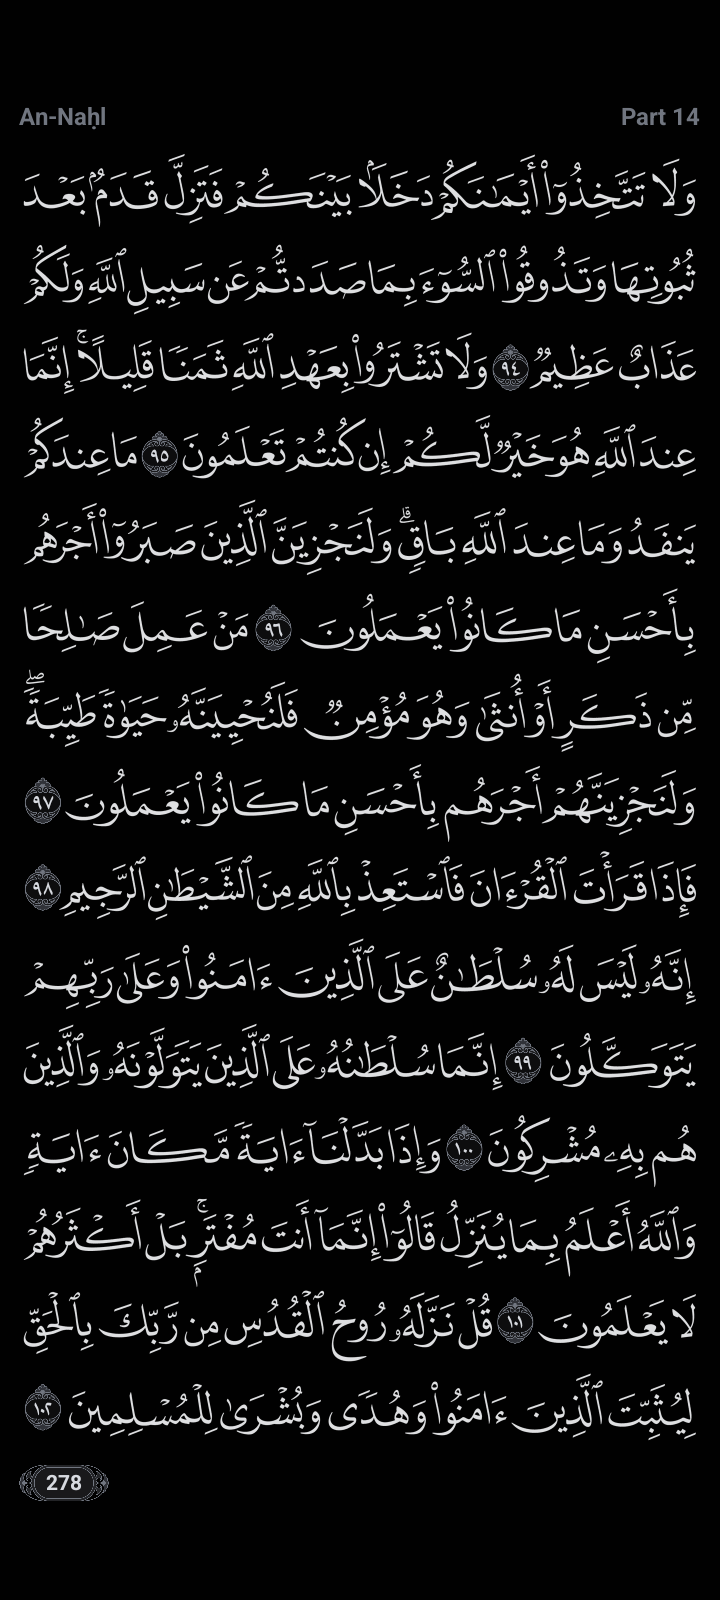 An-Naḥl
Part 14
وَلَا تَتَّخِذُوٓا۟ أَيْمَـٰنَكُمْ دَخَلًۢا بَيْنَكُمْ فَتَزِلَّ قَدَمٌۢ بَعْدَ
ثُبُوتِهَا وَتَذُوقُوا۟ ٱلسُّوٓءَ بِمَا صَدَدتُّمْ عَن سَبِيلِ ٱللَّهِ وَلَكُمْ
عَذَابٌ عَظِيمٌ ٩٤ وَلَا تَشْتَرُوا۟ بِعَهْدِ ٱللَّهِ ثَمَنًا قَلِيلًا ۚ إِنَّمَا
عِندَ ٱللَّهِ هُوَ خَيْرٌ لَّكُمْ إِن كُنتُمْ تَعْلَمُونَ ٩٥ مَا عِندَكُمْ
يَنفَدُ وَمَا عِندَ ٱللَّهِ بَاقٍ ۗ وَلَنَجْزِيَنَّ ٱلَّذِينَ صَبَرُوٓا۟ أَجْرَهُم
بِأَحْسَنِ مَا كَانُوا۟ يَعْمَلُونَ ٩٦ مَنْ عَمِلَ صَـٰلِحًا
مِّن ذَكَرٍ أَوْ أُنثَىٰ وَهُوَ مُؤْمِنٌ فَلَنُحْيِيَنَّهُۥ حَيَوٰةً طَيِّبَةً ۖ
وَلَنَجْزِيَنَّهُمْ أَجْرَهُم بِأَحْسَنِ مَا كَانُوا۟ يَعْمَلُونَ ٩٧
فَإِذَا قَرَأْتَ ٱلْقُرْءَانَ فَٱسْتَعِذْ بِٱللَّهِ مِنَ ٱلشَّيْطَـٰنِ ٱلرَّجِيمِ ٩٨
إِنَّهُۥ لَيْسَ لَهُۥ سُلْطَـٰنٌ عَلَى ٱلَّذِينَ ءَامَنُوا۟ وَعَلَىٰ رَبِّهِمْ
يَتَوَكَّلُونَ ٩٩ إِنَّمَا سُلْطَـٰنُهُۥ عَلَى ٱلَّذِينَ يَتَوَلَّوْنَهُۥ وَٱلَّذِينَ
هُم بِهِۦ مُشْرِكُونَ ١٠٠ وَإِذَا بَدَّلْنَآ ءَايَةً مَّكَانَ ءَايَةٍ
وَٱللَّهُ أَعْلَمُ بِمَا يُنَزِّلُ قَالُوٓا۟ إِنَّمَآ أَنتَ مُفْتَرٍۭ ۚ بَلْ أَكْثَرُهُمْ
لَا يَعْلَمُونَ ١٠١ قُلْ نَزَّلَهُۥ رُوحُ ٱلْقُدُسِ مِن رَّبِّكَ بِٱلْحَقِّ
لِيُثَبِّتَ ٱلَّذِينَ ءَامَنُوا۟ وَهُدًى وَبُشْرَىٰ لِلْمُسْلِمِينَ ١٠٢
278